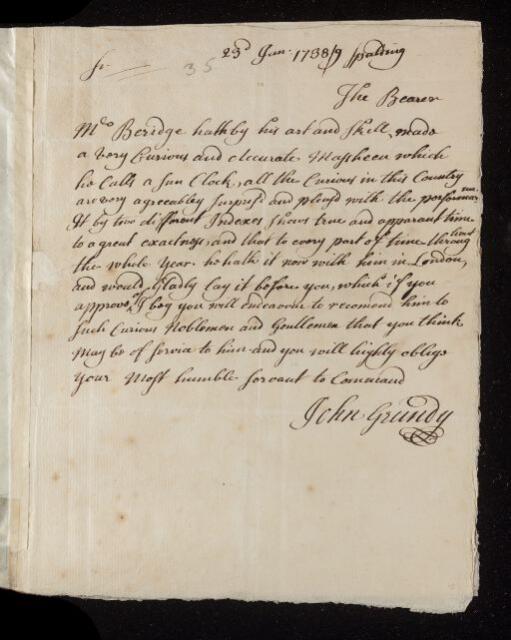 Sr.
35
23d Jan: 1738/9 Spalding
The Bearer
Mr Beridge hath by his art and Skill, made
a Very Curious and Accurate Massheen which
he Calls a Sun Clock, all the Curious in this Country
are very agreeably Surprisd and pleasd with the performance
It by two different Indexes shows true and apparant time
to a great exactness, and that to every part of time throughout
the whole Year. he hath it now with him in London,
and would Gladly lay it before you, which if you
approve of I beg you will endeavour to recomend him to
Such Curious Noblemen and Gentlemen that you think
May be of Servis to him and you will highly oblige
Your Most humble Servant to Comand
John Grundy